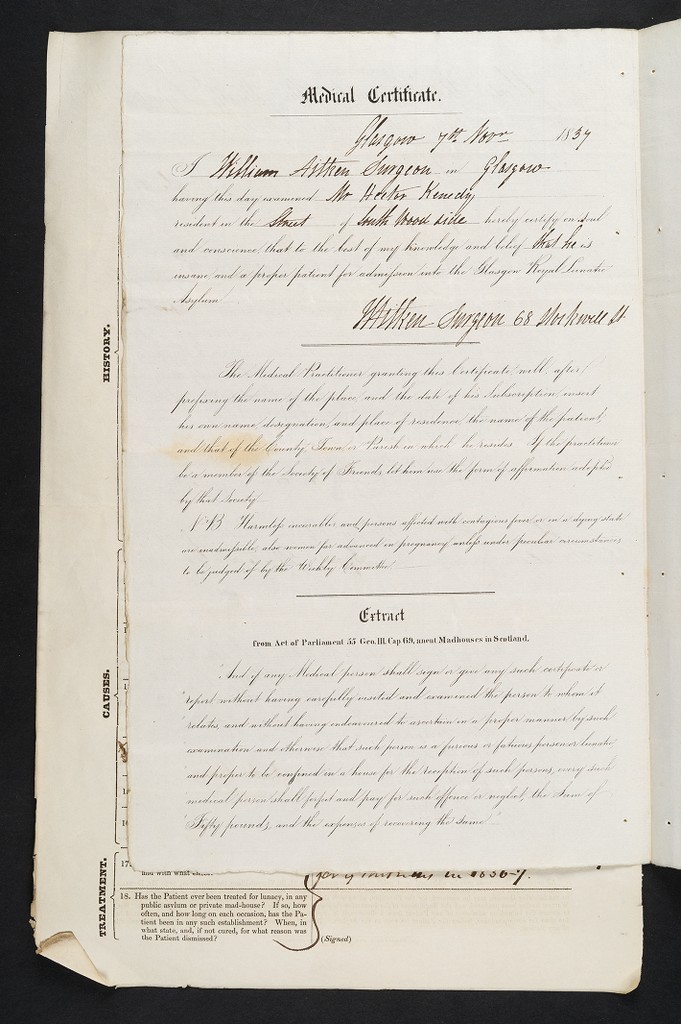 Medical Certificate.
Glasgow 7th Novr 1837
I William Aitken Surgeon in Glasgow
having this day examined Mr Hector Kenedy
resident in the Street of South Wood side hereby certify on soul
and conscience, that to the best of my knowledge and belief that he is
insane, and a proper patient for admission into the Glasgow Royal Lunatic
Asylum
WAitken Surgeon 68 Stockwell St
The Medical Practitioner granting this Certificate will, after
prefixing the name of the place and the date of his Subscription, insert
his own name, designation, and place of residence, the name of the patient,
and that of the County, Town, or Parish in which he resides. If the practitioner
be a member of the Society of Friends, let him use the form of affirmation adopted
by that Society
N.B. Harmless incurables and persons affected with contagious fever or in a dying state
are inadmissible; also women far advanced in pregnancy, unless under peculiar circumstances,
to be judged of by the Weekly Committee
Extract
from Act of Parliament 55 Geo. III. Cap 69, anent Madhouses in Scotland.
"And if any Medical person shall sign or give any such certificate or
"report without having carefully visited and examined the person to whom it
"relates, and without having endeavoured to ascertain in a proper manner by such
"examination and otherwise that such person is a furious or fatuous person or lunatic
"and proper to be confined in a house for the reception of such persons, every such
"medical person shall forfeit and pay for such offence or neglect, the Sum of
"Fifty pounds, and the expenses of recovering the same"
HISTORY.
CAUSES.
TREATMENT.
17.
and with what
in 1836-7.
18. Has the Patient ever been treated for lunacy, in any
public asylum or private mad-house? If so, how
often, and how long on each occasion, has the Pa-
tient been in any such establishment? When, in
what state, and, if not cured, for what reason was
the Patient dismissed?
(Signed)